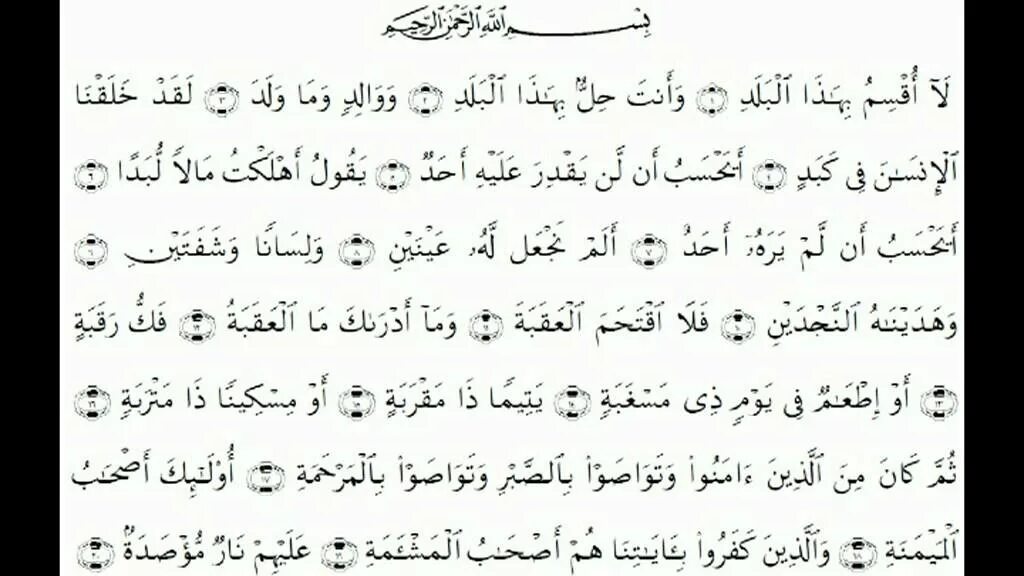 بِسْمِ اللَّهِ الرَّحْمَٰنِ الرَّحِيمِ
لَآ أُقْسِمُ بِهَـٰذَا ٱلْبَلَدِ ۝١ وَأَنتَ حِلٌّۢ بِهَـٰذَا ٱلْبَلَدِ ۝٢ وَوَالِدٍ وَمَا وَلَدَ ۝٣ لَقَدْ خَلَقْنَا
ٱلْإِنسَـٰنَ فِى كَبَدٍ ۝٤ أَيَحْسَبُ أَن لَّن يَقْدِرَ عَلَيْهِ أَحَدٌ ۝٥ يَقُولُ أَهْلَكْتُ مَالًا لُّبَدًا ۝٦
أَيَحْسَبُ أَن لَّمْ يَرَهُۥٓ أَحَدٌ ۝٧ أَلَمْ نَجْعَل لَّهُۥ عَيْنَيْنِ ۝٨ وَلِسَانًا وَشَفَتَيْنِ ۝٩
وَهَدَيْنَـٰهُ ٱلنَّجْدَيْنِ ۝١٠ فَلَا ٱقْتَحَمَ ٱلْعَقَبَةَ ۝١١ وَمَآ أَدْرَىٰكَ مَا ٱلْعَقَبَةُ ۝١٢ فَكُّ رَقَبَةٍ
۝١٣ أَوْ إِطْعَـٰمٌ فِى يَوْمٍ ذِى مَسْغَبَةٍ ۝١٤ يَتِيمًا ذَا مَقْرَبَةٍ ۝١٥ أَوْ مِسْكِينًا ذَا مَتْرَبَةٍ ۝١٦
ثُمَّ كَانَ مِنَ ٱلَّذِينَ ءَامَنُوا۟ وَتَوَاصَوْا۟ بِٱلصَّبْرِ وَتَوَاصَوْا۟ بِٱلْمَرْحَمَةِ ۝١٧ أُو۟لَـٰٓئِكَ أَصْحَـٰبُ
ٱلْمَيْمَنَةِ ۝١٨ وَٱلَّذِينَ كَفَرُوا۟ بِـَٔايَـٰتِنَا هُمْ أَصْحَـٰبُ ٱلْمَشْـَٔمَةِ ۝١٩ عَلَيْهِمْ نَارٌ مُّؤْصَدَةٌۢ ۝٢٠